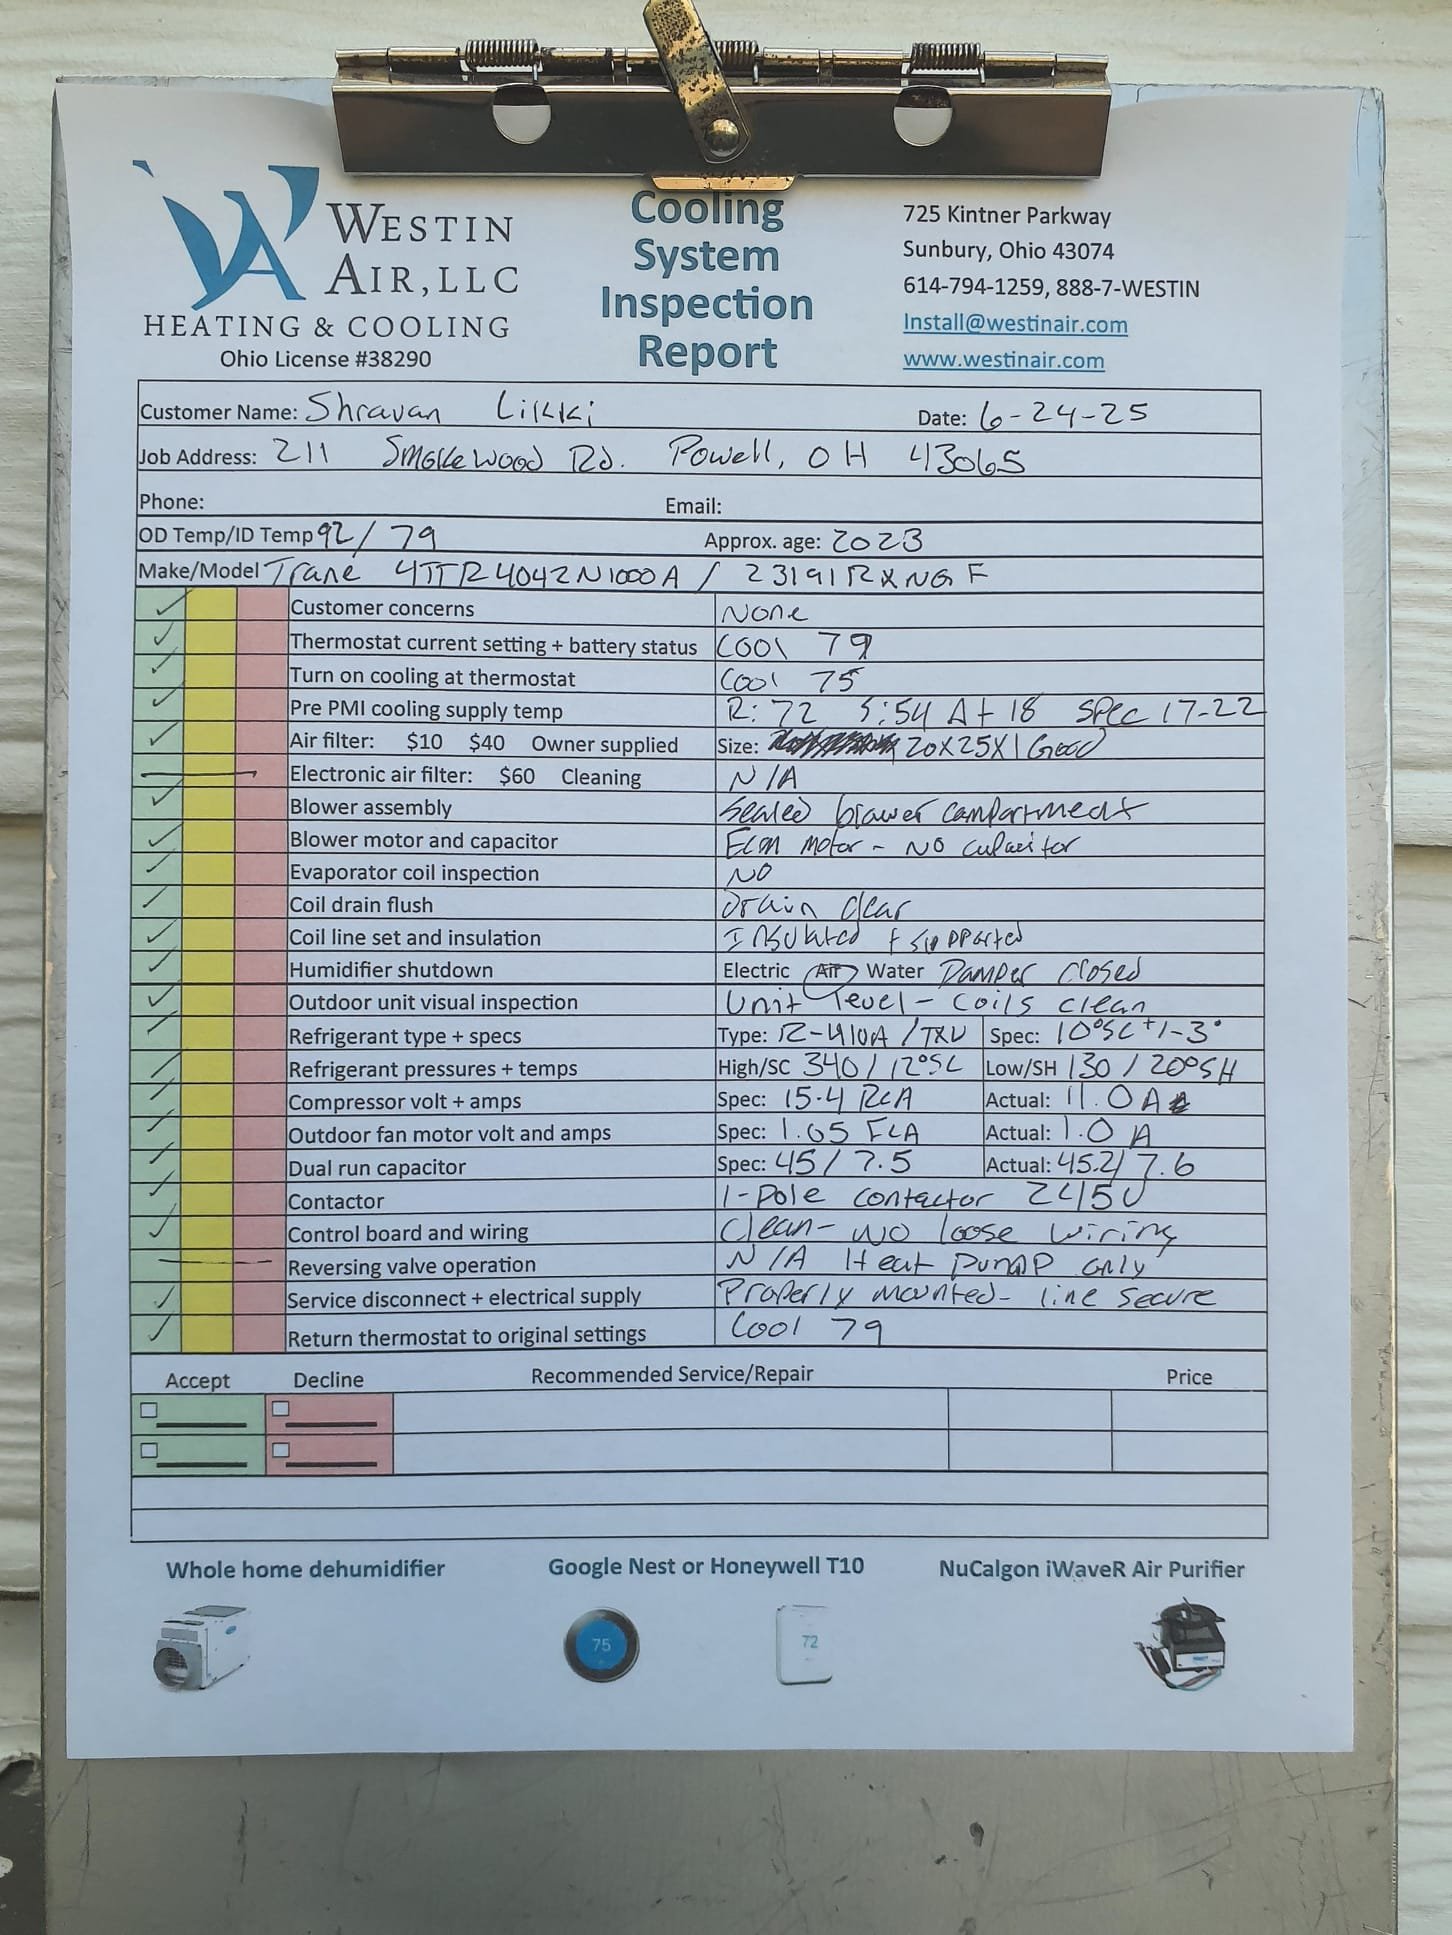 WESTIN
AIR, LLC
HEATING & COOLING
Ohio License #38290
Cooling
System
Inspection
Report
725 Kintner Parkway
Sunbury, Ohio 43074
614-794-1259, 888-7-WESTIN
Install@westinair.com
www.westinair.com
Customer Name: Shravan Likki Date: 6-24-25
Job Address: 211 Smokewood Rd. Powell, OH 43065
Phone: Email:
OD Temp/ID Temp 92/79 Approx. age: 2023
Make/Model Trane 4TTR4042N1000A / 23191RXNGF
Customer concerns None
Thermostat current setting + battery status Cool 79
Turn on cooling at thermostat Cool 75
Pre PMI cooling supply temp R: 72 S: 54 Δt 18 Spec 17-22
Air filter: $10 $40 Owner supplied Size: 20x25x1 Good
Electronic air filter: $60 Cleaning N/A
Blower assembly Sealed blower compartment
Blower motor and capacitor ECM motor - No capacitor
Evaporator coil inspection NO
Coil drain flush Drain clear
Coil line set and insulation Insulated + supported
Humidifier shutdown Electric Air Water Damper closed
Outdoor unit visual inspection Unit level - coils clean
Refrigerant type + specs Type: R-410A /TXV Spec: 10°SC +/-3°
Refrigerant pressures + temps High/SC 340/12°SC Low/SH 130/20°SH
Compressor volt + amps Spec: 15.4 RLA Actual: 11.0 A
Outdoor fan motor volt and amps Spec: 1.05 FLA Actual: 1.0 A
Dual run capacitor Spec: 45/7.5 Actual: 45.2/7.6
Contactor 1-Pole contactor 245V
Control board and wiring Clean - No loose wiring
Reversing valve operation N/A Heat pump only
Service disconnect + electrical supply Properly mounted - line secure
Return thermostat to original settings Cool 79
Accept Decline Recommended Service/Repair Price
Whole home dehumidifier Google Nest or Honeywell T10 NuCalgon iWaveR Air Purifier
75 72